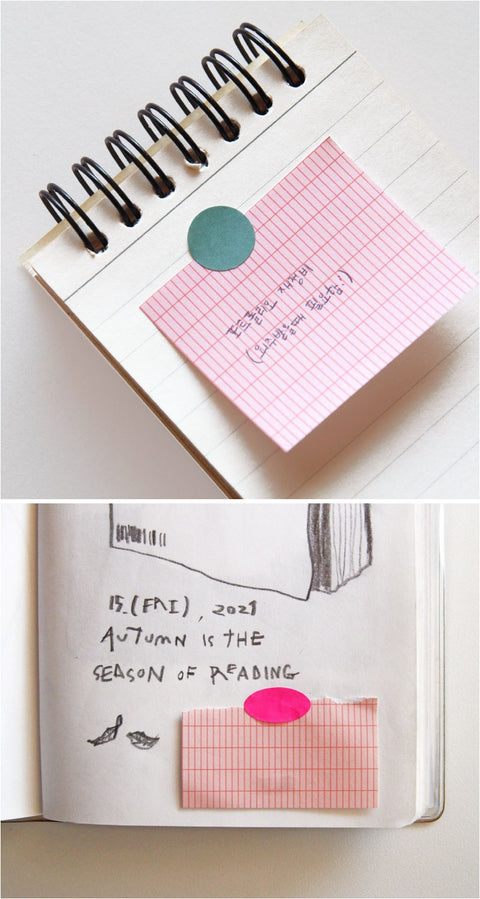 포트폴리오 재정비
(외주받을때 필요함!)
15.(FRI), 2021
AUTUMN IS THE
SEASON OF READING